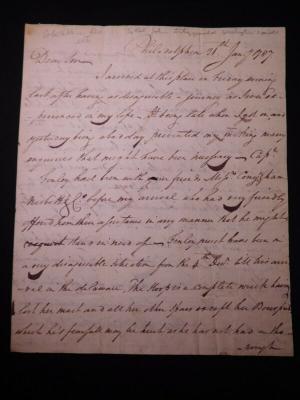 Philadelphia 21th Jany 1787
Dear Sir
I arrived at this place on Friday evening
last after having as disagreeable a journey as I ever ex-
perienced in my life. It being late when I got in, and
yesterday being a bad day prevented my making many
enquiries that might have been necessary — Capn
Fenley has been with our friends Messrs Conyngham
Nesbitt & Co before my arrival who had very friendly
offered him their assistance in any manner that he might
stand in need of — Fenley must have been in
a very disagreeable situation from the 4th till his arri-
val in the delaware, The Ship is a complete wreck having
lost her mast and all her other Spars except her Bowsprit
which he's fearfull may be hurt as he has not had in tho-
rough